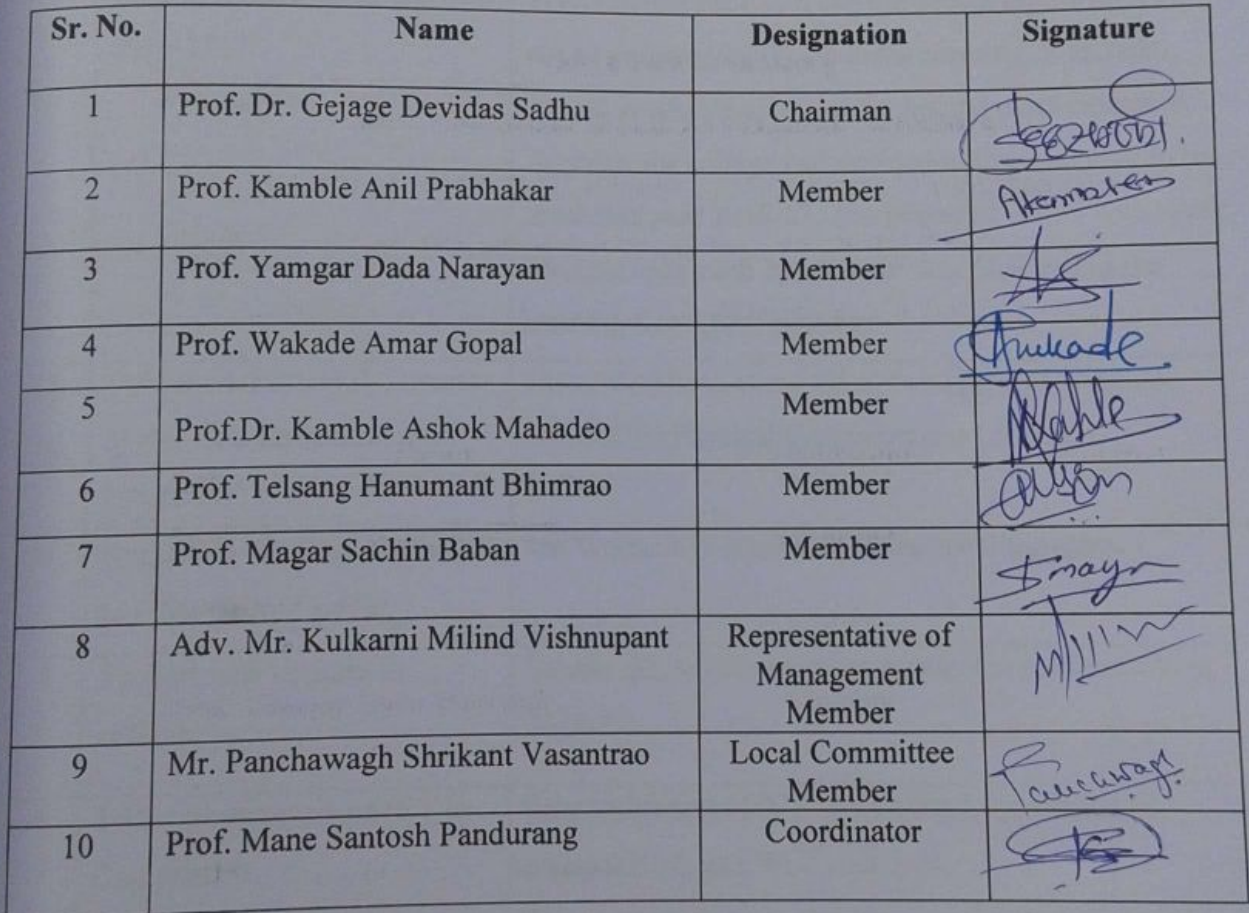 Sr. No. Name Designation Signature
1 Prof. Dr. Gejage Devidas Sadhu Chairman
2 Prof. Kamble Anil Prabhakar Member
3 Prof. Yamgar Dada Narayan Member
4 Prof. Wakade Amar Gopal Member
5 Prof.Dr. Kamble Ashok Mahadeo Member
6 Prof. Telsang Hanumant Bhimrao Member
7 Prof. Magar Sachin Baban Member
8 Adv. Mr. Kulkarni Milind Vishnupant Representative of
Management
Member
9 Mr. Panchawagh Shrikant Vasantrao Local Committee
Member
10 Prof. Mane Santosh Pandurang Coordinator